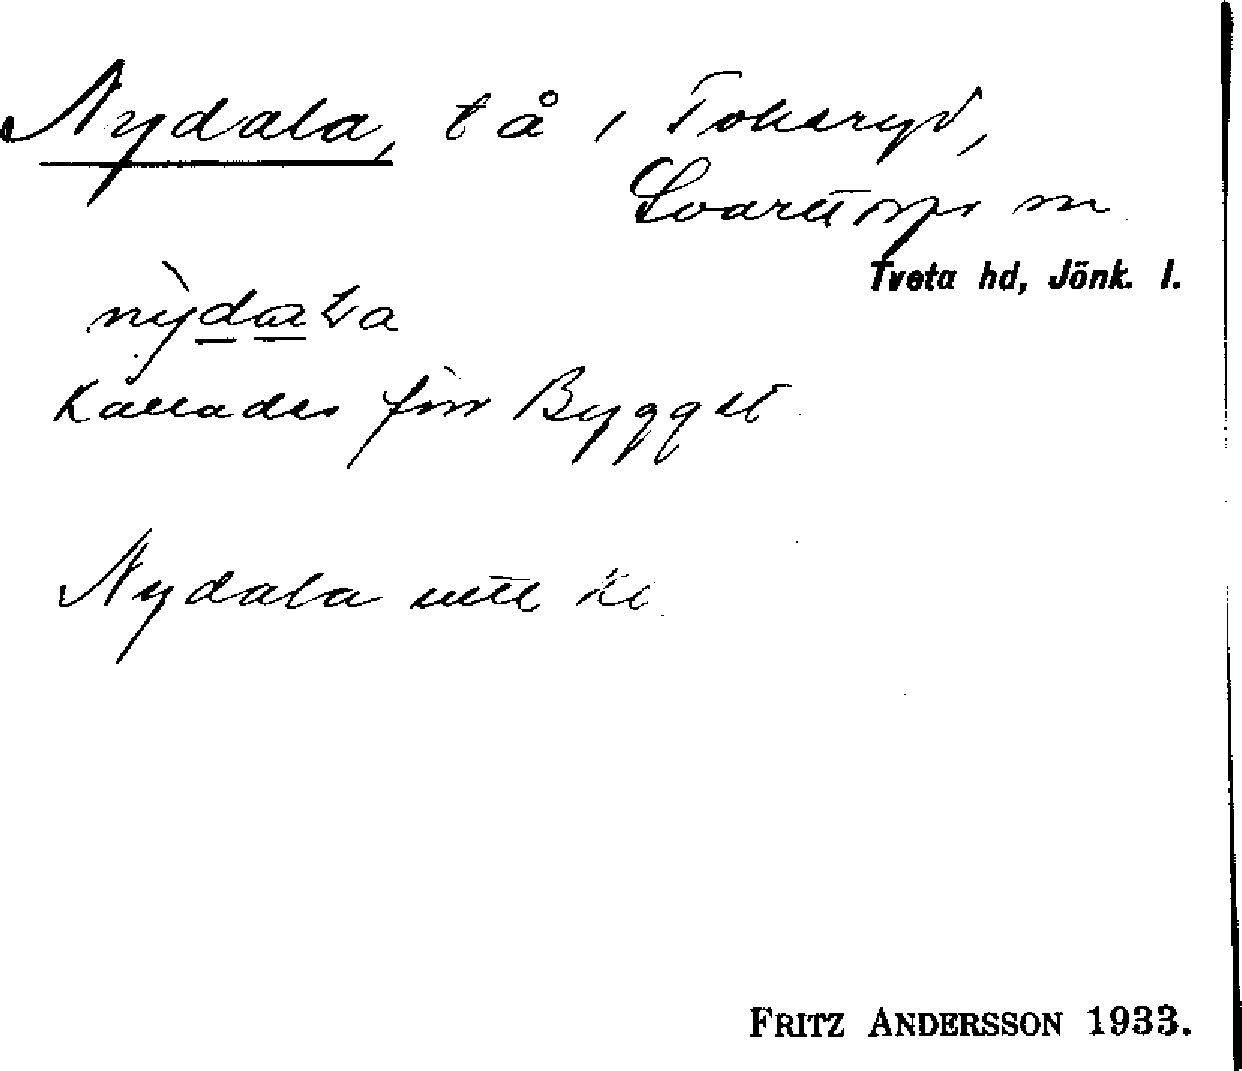 Nydala, tå i Tokeryd,
Svarttorps sn
Tveta hd, Jönk. l.
nỳdala
kallades förr Bygget
Nydala
FRITZ ANDERSSON 1933.